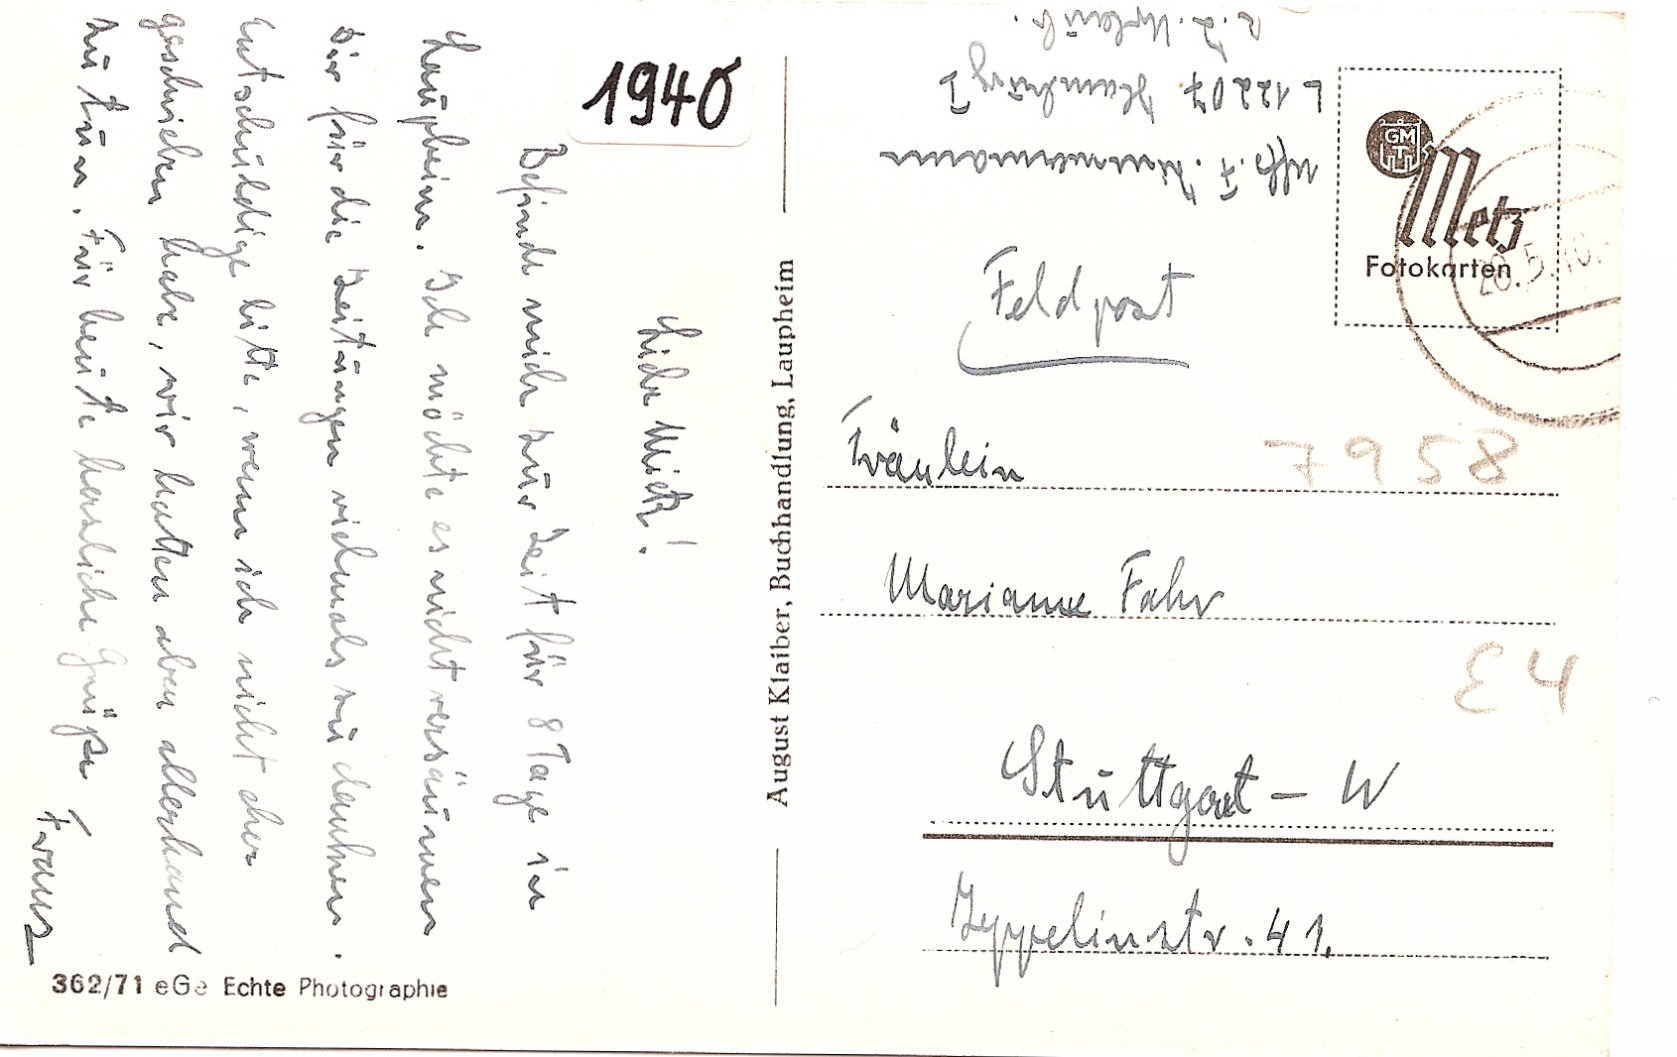 1940
Liebe Mietz!
Befinde mich zur Zeit für 8 Tage in
Laupheim. Ich möchte es nicht versäumen
Dir für die Zeitungen vielmals zu danken.
Entschuldige bitte, wenn ich nicht eher
geschrieben habe, wir hatten eben allerhand
zu tun. Für heute herzliche Grüße
Franz
362/71 eGe Echte Photographie
August Klaiber, Buchhandlung, Laupheim
Uffz. F.
L 12207 Hamburg I
z. Z. Urlaub.
GM
Metz
Fotokarten
28.5.40.
Feldpost
Fräulein
7958
Marianne Fahr
E4
Stuttgart - W
Zeppelinstr. 41.